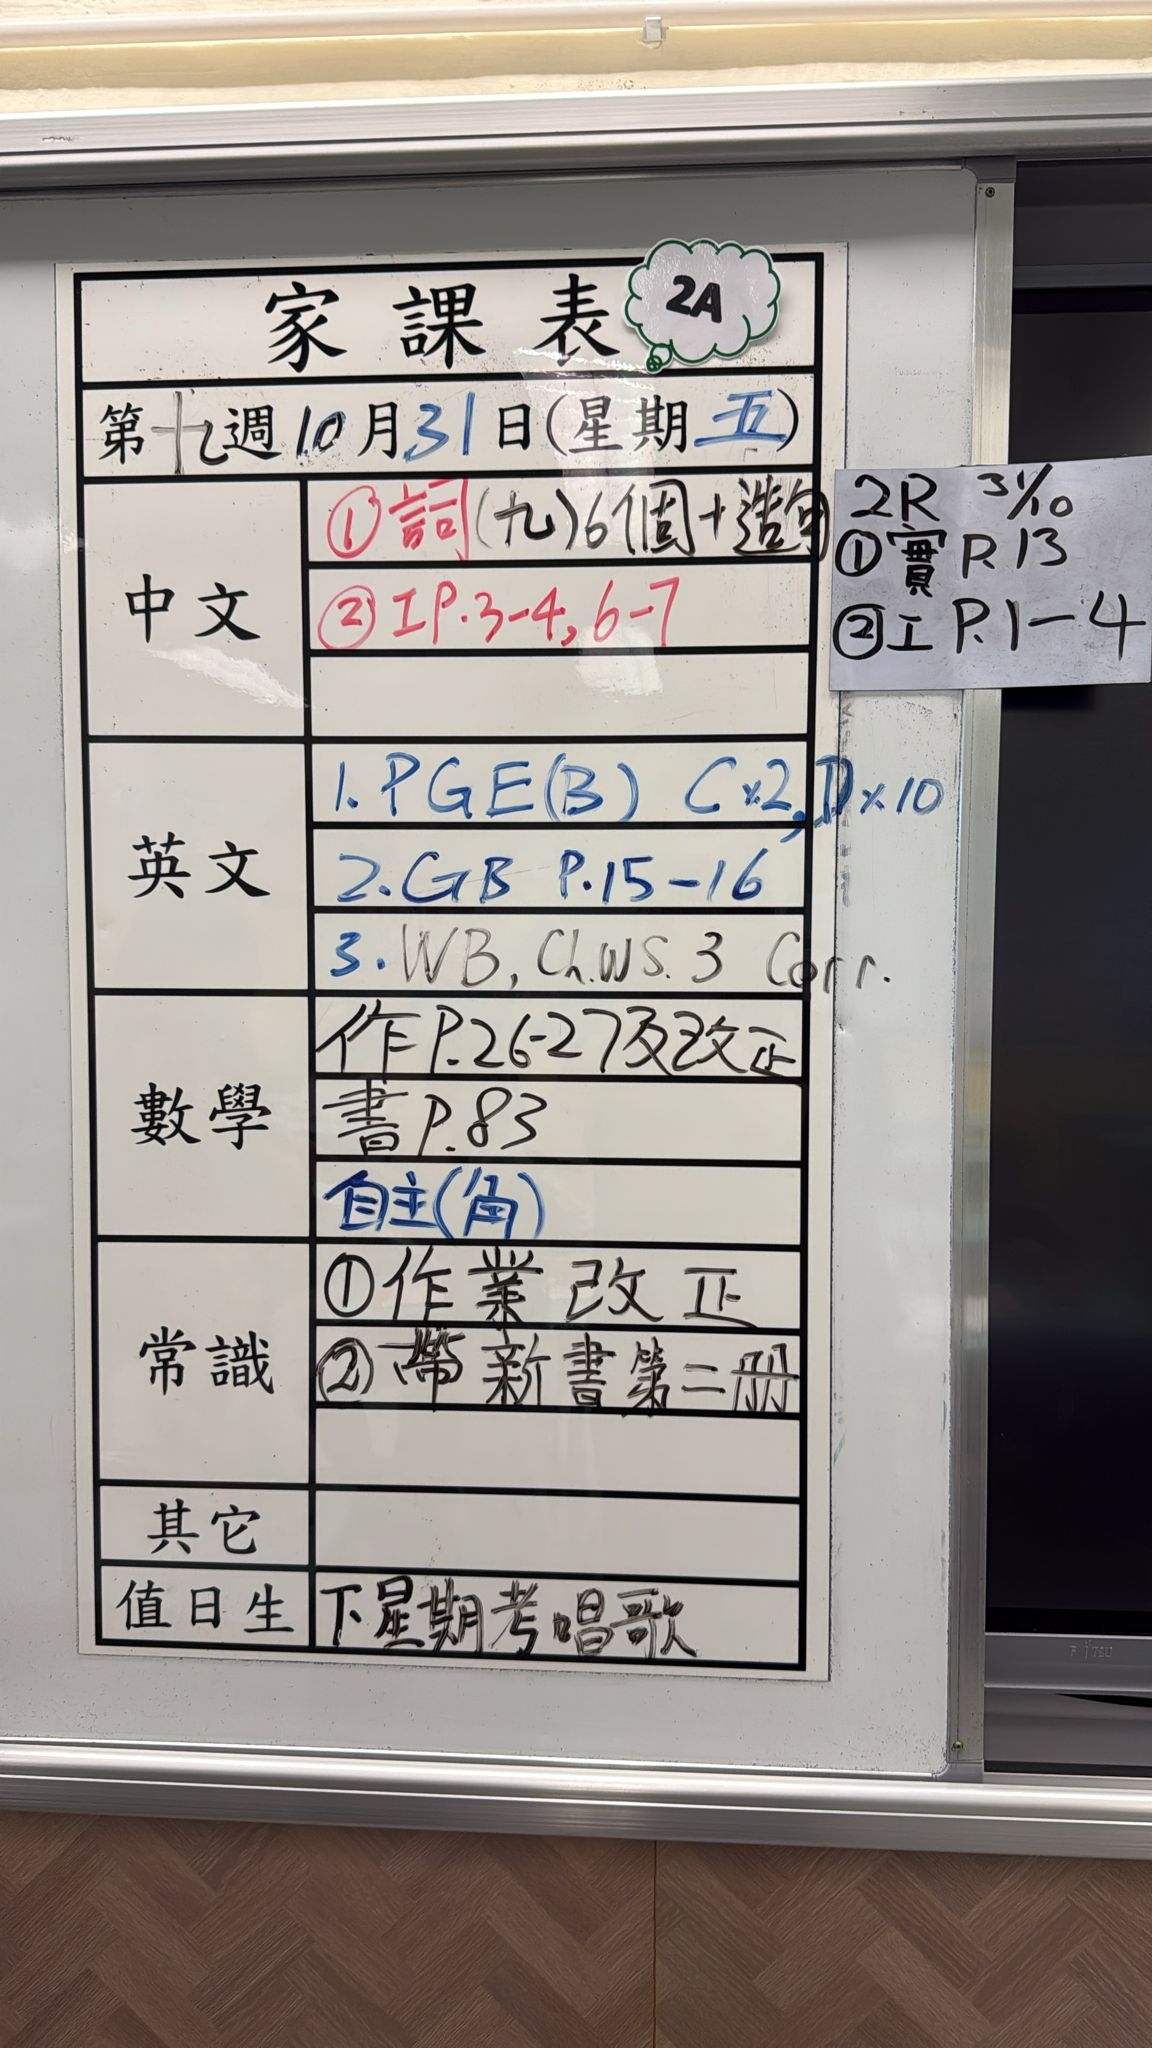 家課表
2A
第十九週10月31日(星期五)
中文
①詞(九)6個+造句
②工P.3-4,6-7
2R 31/10
①實P.13
②工P.1-4
英文
1.PGE(B) C×2,D×10
2.GB P.15-16
3.WB, Ch.WS.3 Corr.
數學
作P.26-27及改正
書P.83
自主(角)
常識
①作業改正
②帶新書第二冊
其它
值日生
下星期考唱歌